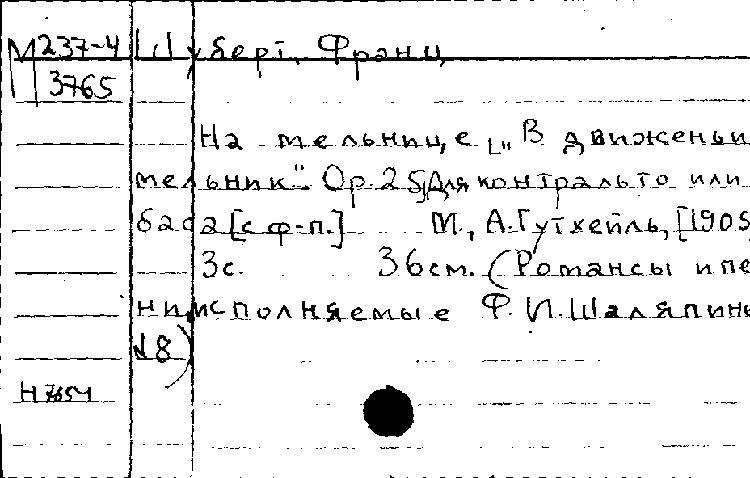 М 237-4 Шуберт, Франц
3765
На мельнице [„В движеньи
мельник“. Ор. 25] Для контральто или
баса [с ф-п.] М., А. Гутхейль, [1905
3с. 36см. (Романсы и пе
ни исполняемые Ф. И. Шаляпины
18)